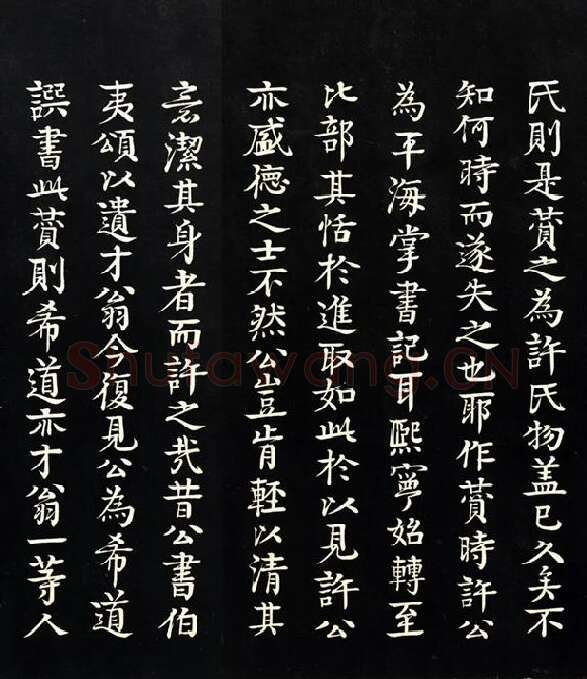 氏則是賛之為許氏物盖已久矣不
知何時而遂失之也耶作賛時許公
為平海掌書記耳熙寧始轉至
比部其恬於進取如此於以見許公
亦盛德之士不然公豈肯輕以清其
意潔其身者而許之哉昔公書伯
夷頌以遺才翁今復見公為希道
譔書此賛則希道亦才翁一等人
Shufawang.CN